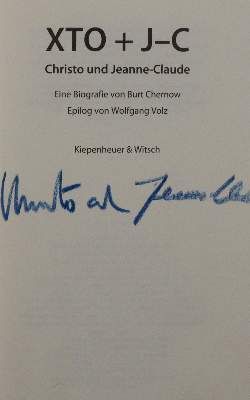 XTO + J–C
Christo und Jeanne-Claude
Eine Biografie von Burt Chernow
Epilog von Wolfgang Volz
Kiepenheuer & Witsch
Christo